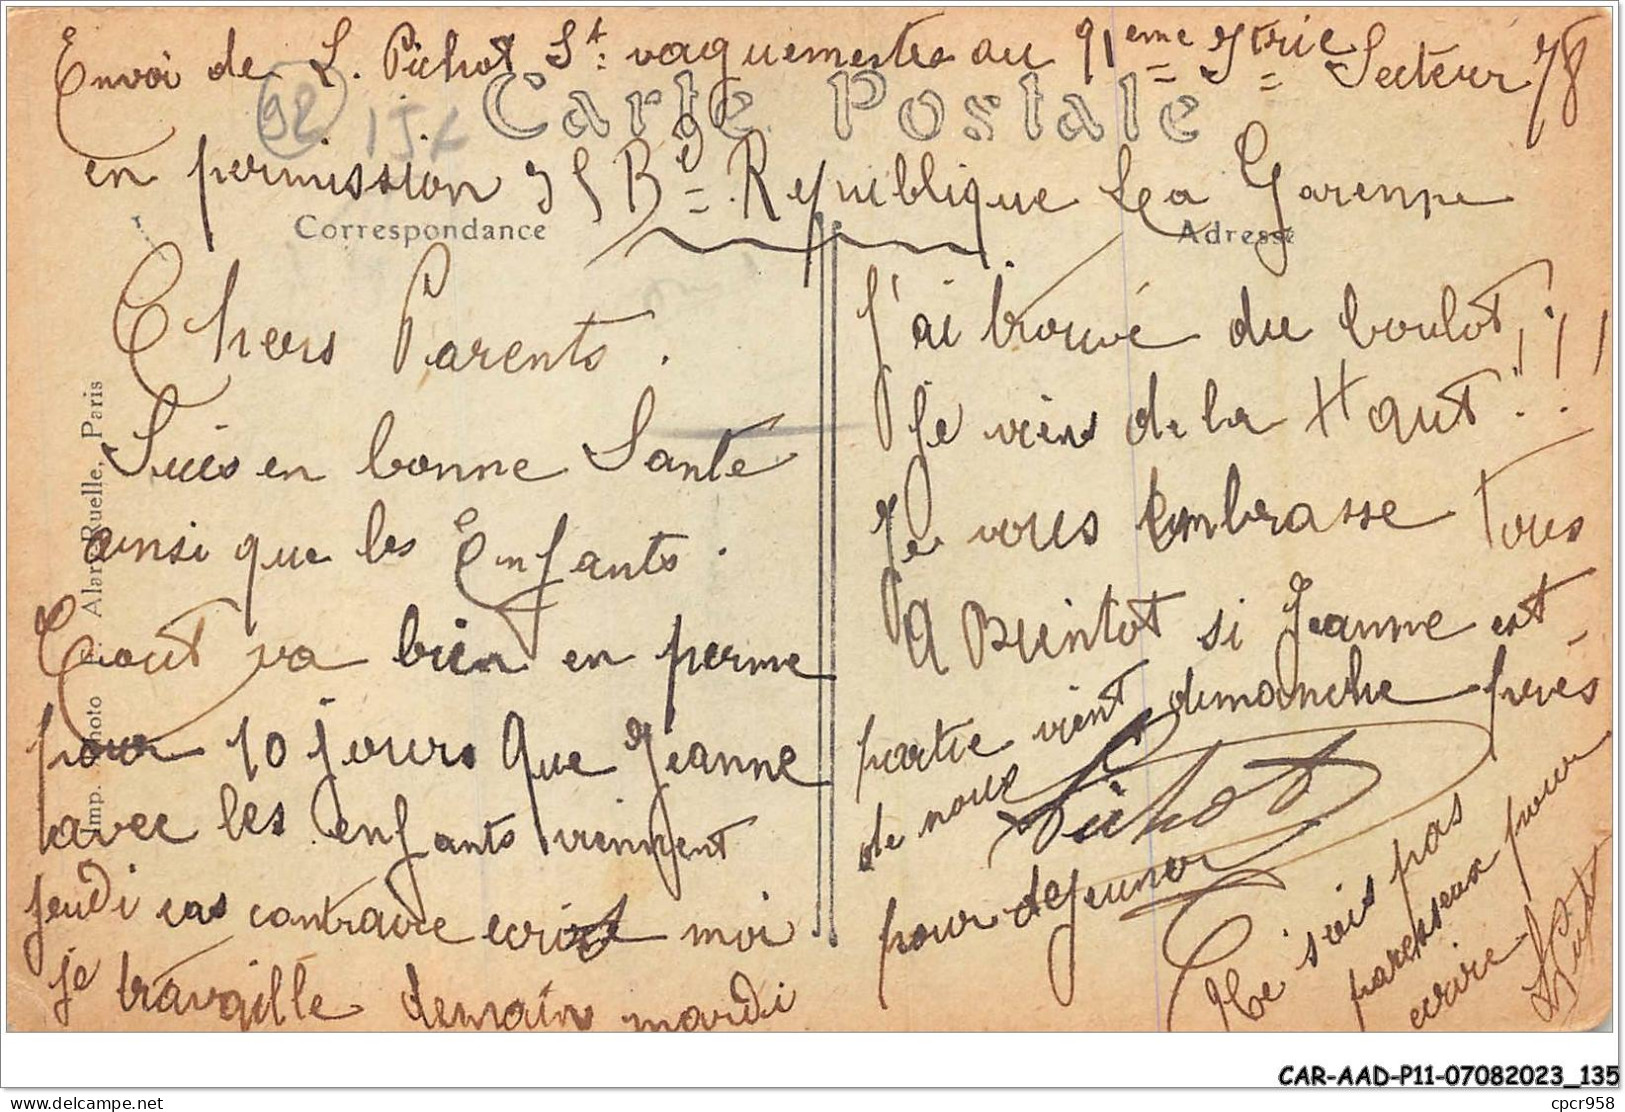 Envoi de L. Pichot St: vaguemestre au 91eme Itrie Secteur 78
92
Carte Postale
en permission 35 Bd République La Garenne
Correspondance
Adresse
Chers Parents.
Suis en bonne Santé
ainsi que les Enfants.
Tout va bien en perme
pour 10 jours que Jeanne
avec les enfants viennent
jeudi cas contraire écrivez moi
je travaille demain mardi
J'ai trouvé du boulot!!!
Je viens de la Haut!!
Je vous Embrasse Tous
A Bientot si Jeanne est
partie vient dimanche près
de nous
pour dejeuner
Pichot
Ne sois pas
paresseux pour
ecrire
Imp. Photo Alary-Ruelle, Paris
CAR-AAD-P11-07082023_135
delcampe.net
cpcr958